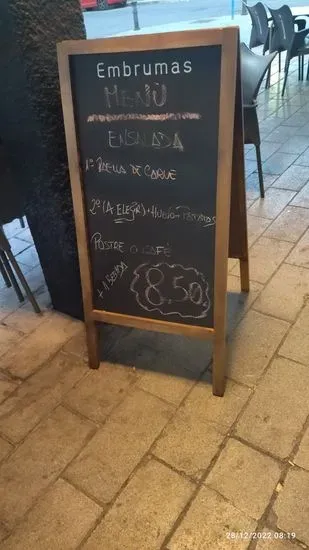 Embrumas
MENÚ
ENSALADA
1º PAELLA DE CARNE
2º (A ELEGIR) + HUEVO + PATATAS
POSTRE O CAFÉ
+ 1 BEBIDA
8.50
28/12/2022 08:19